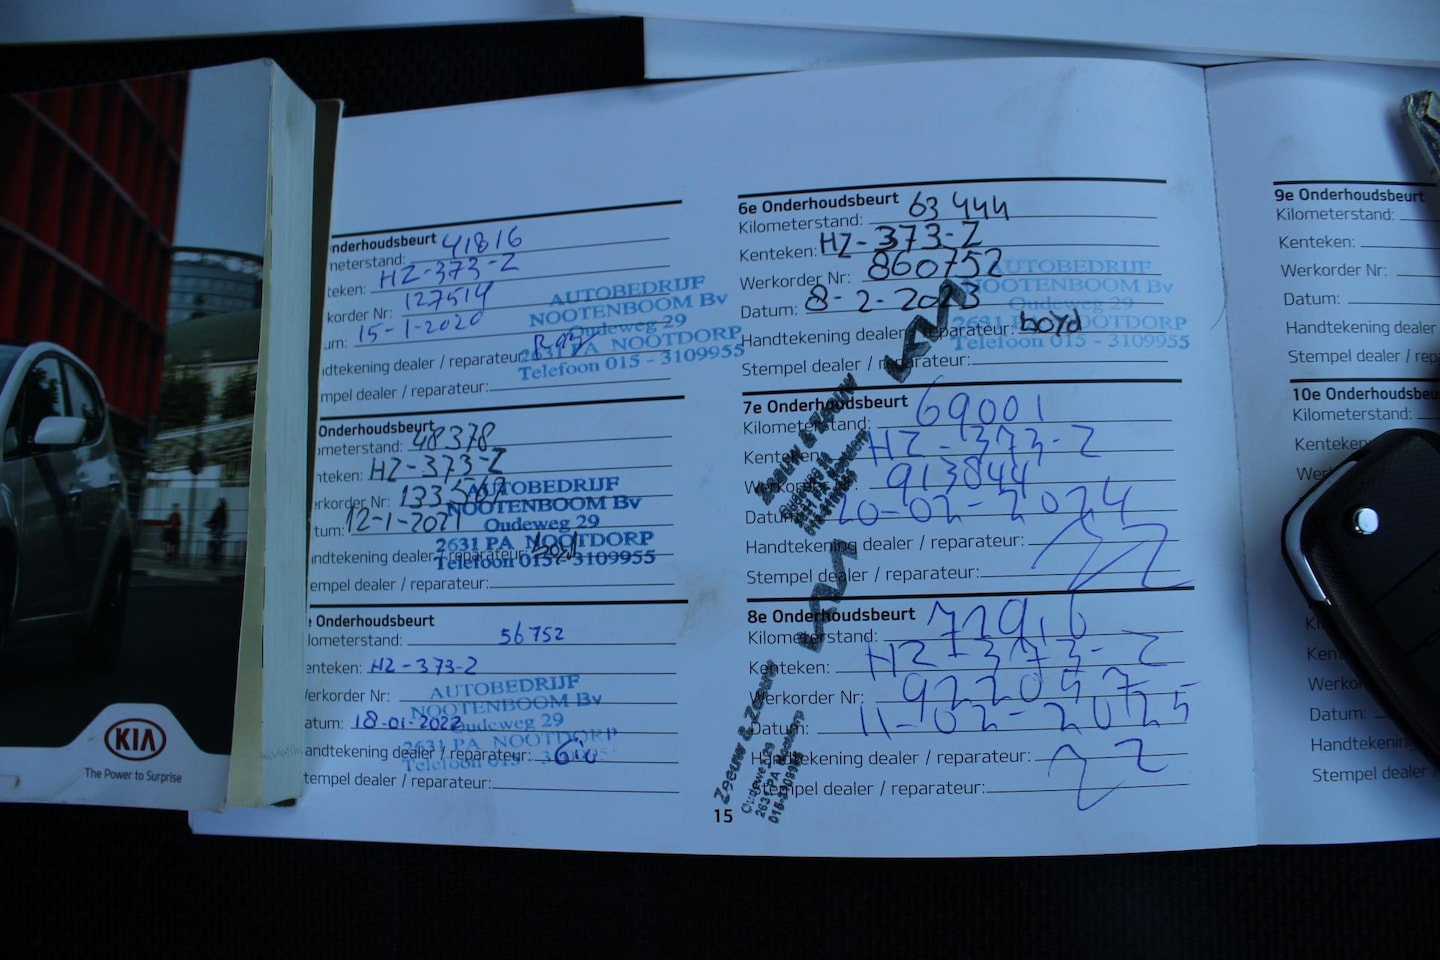 nderhoudsbeurt
meterstand: 41816
teken: HZ-373-Z
korder Nr: 127514
um: 15-1-2020
dtekening dealer / reparateur:
mpel dealer / reparateur:
AUTOBEDRIJF
NOOTENBOOM Bv
Oudeweg 29
2631 PA NOOTDORP
Telefoon 015 - 3109955
Onderhoudsbeurt
ometerstand: 48378
nteken: HZ-373-Z
erkorder Nr: 133567
tum: 12-1-2021
andtekening dealer / reparateur: boyd
empel dealer / reparateur:
AUTOBEDRIJF
NOOTENBOOM Bv
Oudeweg 29
2631 PA NOOTDORP
Telefoon 015 - 3109955
e Onderhoudsbeurt
lometerstand: 56752
enteken: HZ-373-Z
Werkorder Nr:
atum: 18-01-2022
andtekening dealer / reparateur: Gio
tempel dealer / reparateur:
AUTOBEDRIJF
NOOTENBOOM Bv
Oudeweg 29
2631 PA NOOTDORP
Telefoon 015
6e Onderhoudsbeurt
Kilometerstand: 63444
Kenteken: HZ-373-Z
Werkorder Nr: 860752
Datum: 8-2-2023
Handtekening dealer / reparateur: boyd
Stempel dealer / reparateur:
AUTOBEDRIJF
NOOTENBOOM Bv
Oudeweg 29
2631 PA NOOTDORP
Telefoon 015 - 3109955
7e Onderhoudsbeurt
Kilometerstand: 69001
Kenteken: HZ-373-Z
Werkorder Nr: 913844
Datum: 20-02-2024
Handtekening dealer / reparateur:
Stempel dealer / reparateur:
Zeeuw & Zeeuw
8e Onderhoudsbeurt
Kilometerstand:
Kenteken: HZ-373-Z
Werkorder Nr: 922057
Datum: 11-02-2025
Handtekening dealer / reparateur:
Stempel dealer / reparateur:
Zeeuw & Zeeuw
Oudeweg 29
2631 PA Nootdorp
015-3109955
15
9e Onderhoudsbeurt
Kilometerstand:
Kenteken:
Werkorder Nr:
Datum:
Handtekening dealer
Stempel dealer / rep
10e Onderhoudsbeu
Kilometerstand:
Kenteken
Werk
Ken
Werko
Datum:
Handtekening
Stempel dealer
KIA
The Power to Surprise